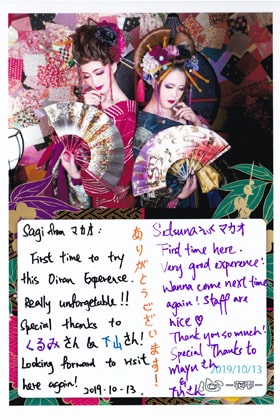 Sagi from マカオ:
First time to try
this Oiran Experence.
Really unforgetable!!
Special thanks to
くるみさん & 下山さん!
Looking forward to visit
here again!
2019.10.13.
ありがとうございます!
Setsuna から マカオ
First time here.
Very good experence!
Wanna come next time
again! Staff are
nice ♡
Thank you so much!
Special Thanks to
Mayuさん
&
さん
2019/10/13